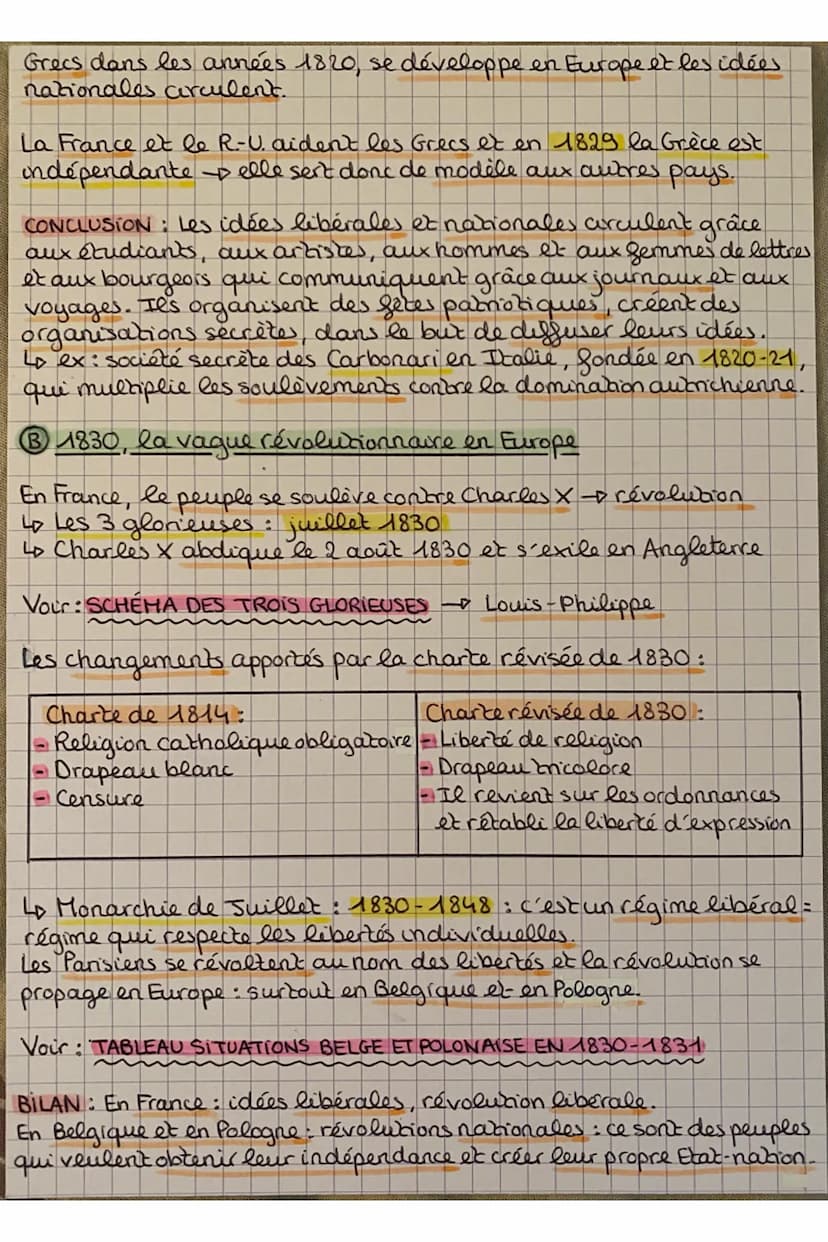 Grecs dans les années 1820, se développe en Europe et les idées
nationales circulent.
La France et le R-U. aident les Grecs et en 1829 la Grèce est
indépendante → elle sert donc de modèle aux autres pays.
CONCLUSION : Les idées libérales et nationales circulent grâce
aux étudiants, aux artistes, aux hommes et aux femmes de lettres
et aux bourgeois qui communiquent grâce aux journaux et aux
voyages. Ils organisent des fêtes patriotiques, créent des
organisations secrètes, dans le but de diffuser leurs idées.
↳ ex : société secrète des Carbonari en Italie, fondée en 1820-21,
qui multiplie les soulèvements contre la domination autrichienne.
Ⓑ 1830, la vague révolutionnaire en Europe
En France, le peuple se soulève contre Charles X → révolution
↳ Les 3 glorieuses : juillet 1830
↳ Charles X abdique le 2 août 1830 et s'exile en Angleterre
Voir : SCHÉMA DES TROIS GLORIEUSES → Louis-Philippe
Les changements apportés par la charte révisée de 1830 :
Charte de 1814 :
- Religion catholique obligatoire
- Drapeau blanc
- Censure
Charte révisée de 1830 :
- Liberté de religion
- Drapeau tricolore
- Il revient sur les ordonnances
et rétabli la liberté d'expression
↳ Monarchie de Juillet : 1830-1848 : c'est un régime libéral =
régime qui respecte les libertés individuelles.
Les Parisiens se révoltent au nom des libertés et la révolution se
propage en Europe : surtout en Belgique et en Pologne.
Voir : TABLEAU SITUATIONS BELGE ET POLONAISE EN 1830-1831
BILAN : En France : idées libérales, révolution libérale.
En Belgique et en Pologne : révolutions nationales : ce sont des peuples
qui veulent obtenir leur indépendance et créer leur propre Etat-nation.